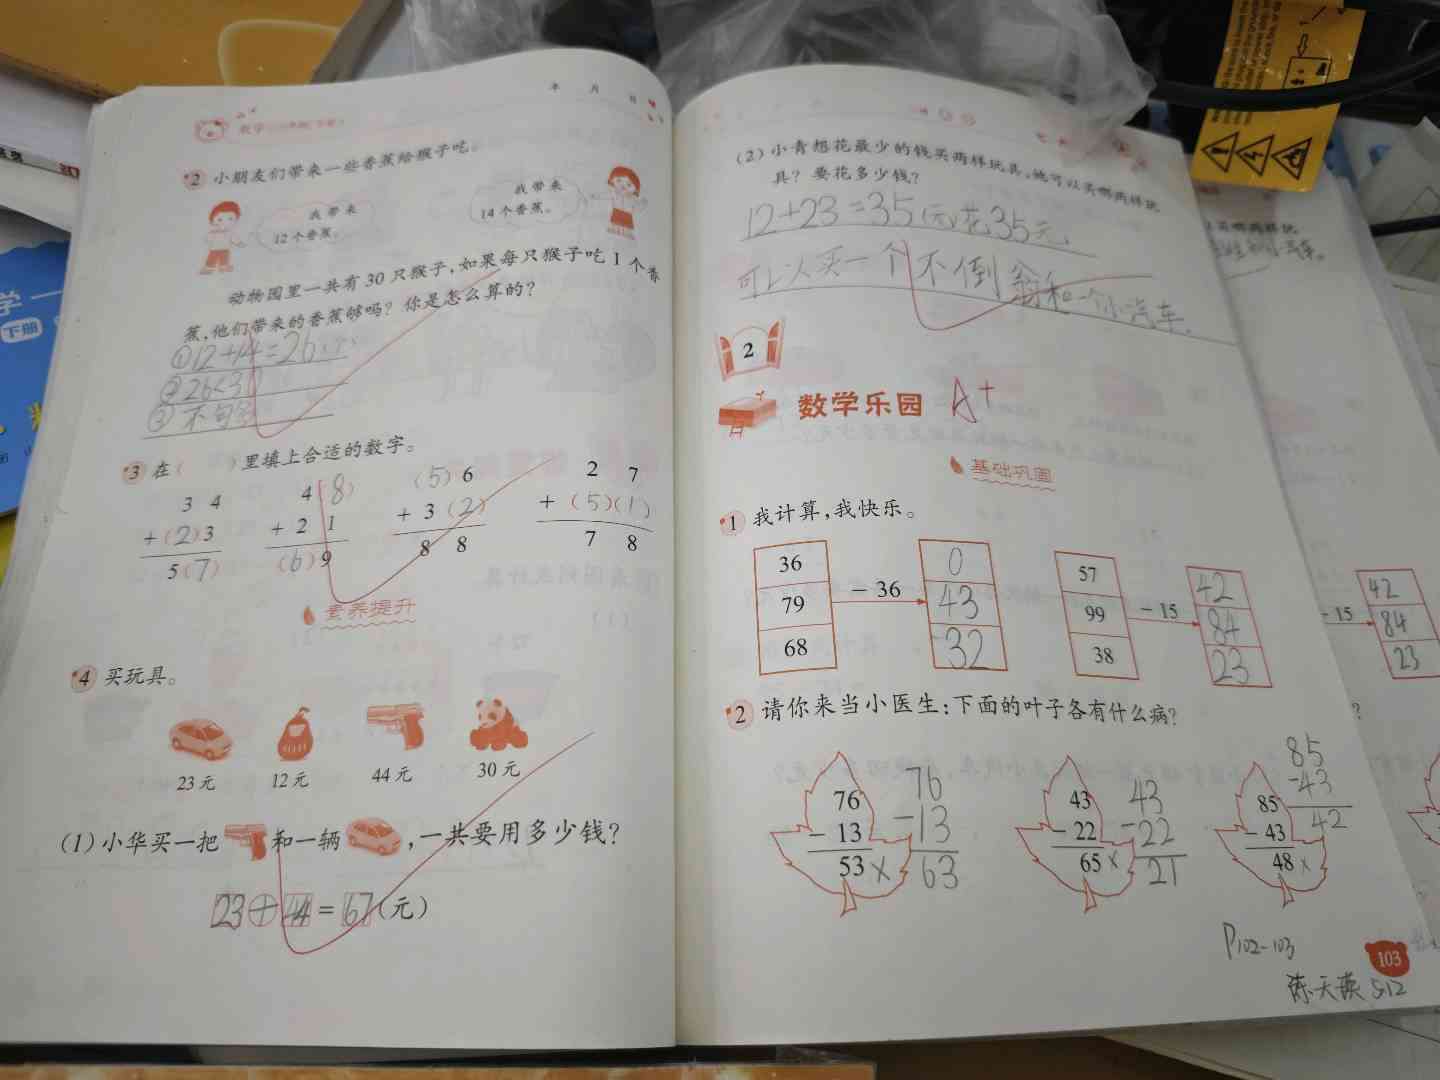 年 月 日
数学
2 小朋友们带来一些香蕉给猴子吃。
我带来
12个香蕉。
我带来
14个香蕉。
动物园里一共有30只猴子,如果每只猴子吃1个香
蕉,他们带来的香蕉够吗?你是怎么算的?
①12+14=26(个)
②26<30
③不够
3 在( )里填上合适的数字。
3 4
+(2)3
5(7)
4(8)
+ 2 1
(6)9
(5)6
+ 3(2)
8 8
2 7
+(5)(1)
7 8
素养提升
4 买玩具。
23元 12元 44元 30元
(1)小华买一把 和一辆 ,一共要用多少钱?
23+44=67(元)
(2)小青想花最少的钱买两样玩具,他可以买哪两样玩
具?要花多少钱?
12+23=35(元)花35元
可以买一个不倒翁和一个小汽车。
2
数学乐园 A+
基础巩固
1 我计算,我快乐。
36
79
68
- 36
0
43
32
57
99
38
- 15
42
84
23
2 请你来当小医生:下面的叶子各有什么病?
76
- 13
53 ×
76
-13
63
43
- 22
65 ×
43
-22
21
85
- 43
48 ×
85
-43
42
P102-103
103
5.12
买哪两样玩
- 15
42
84
23
?
学一
下册